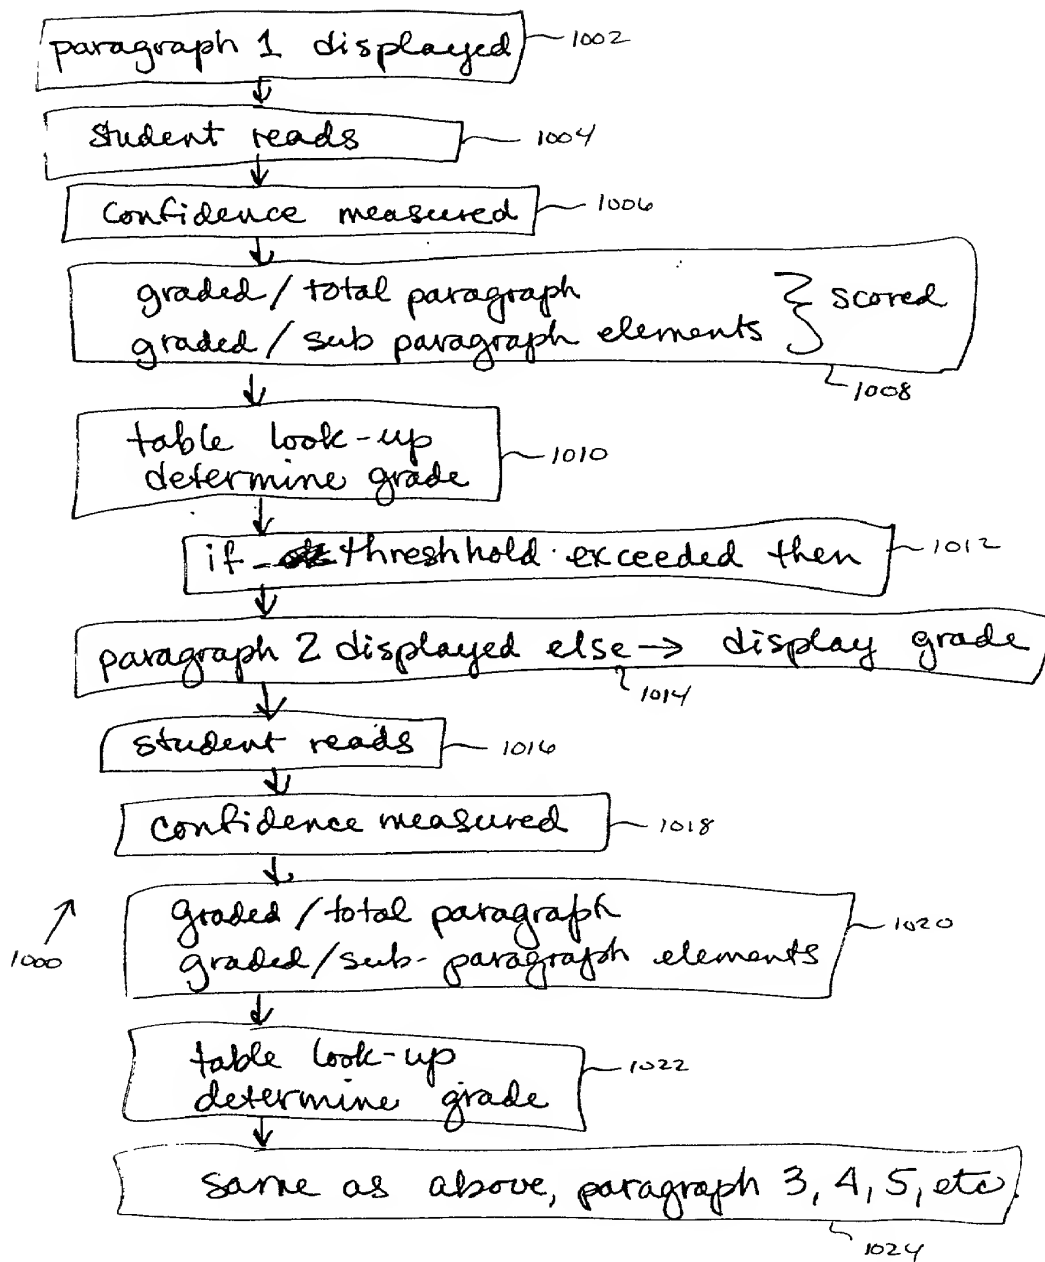 paragraph 1 displayed 1002
student reads 1004
confidence measured 1006
graded / total paragraph
graded / sub paragraph elements } scored
1008
table look-up
determine grade 1010
if threshhold exceeded then 1012
paragraph 2 displayed else → display grade
1014
student reads 1016
confidence measured 1018
graded / total paragraph
graded / sub-paragraph elements 1020
1000
table look-up
determine grade 1022
same as above, paragraph 3, 4, 5, etc.
1024